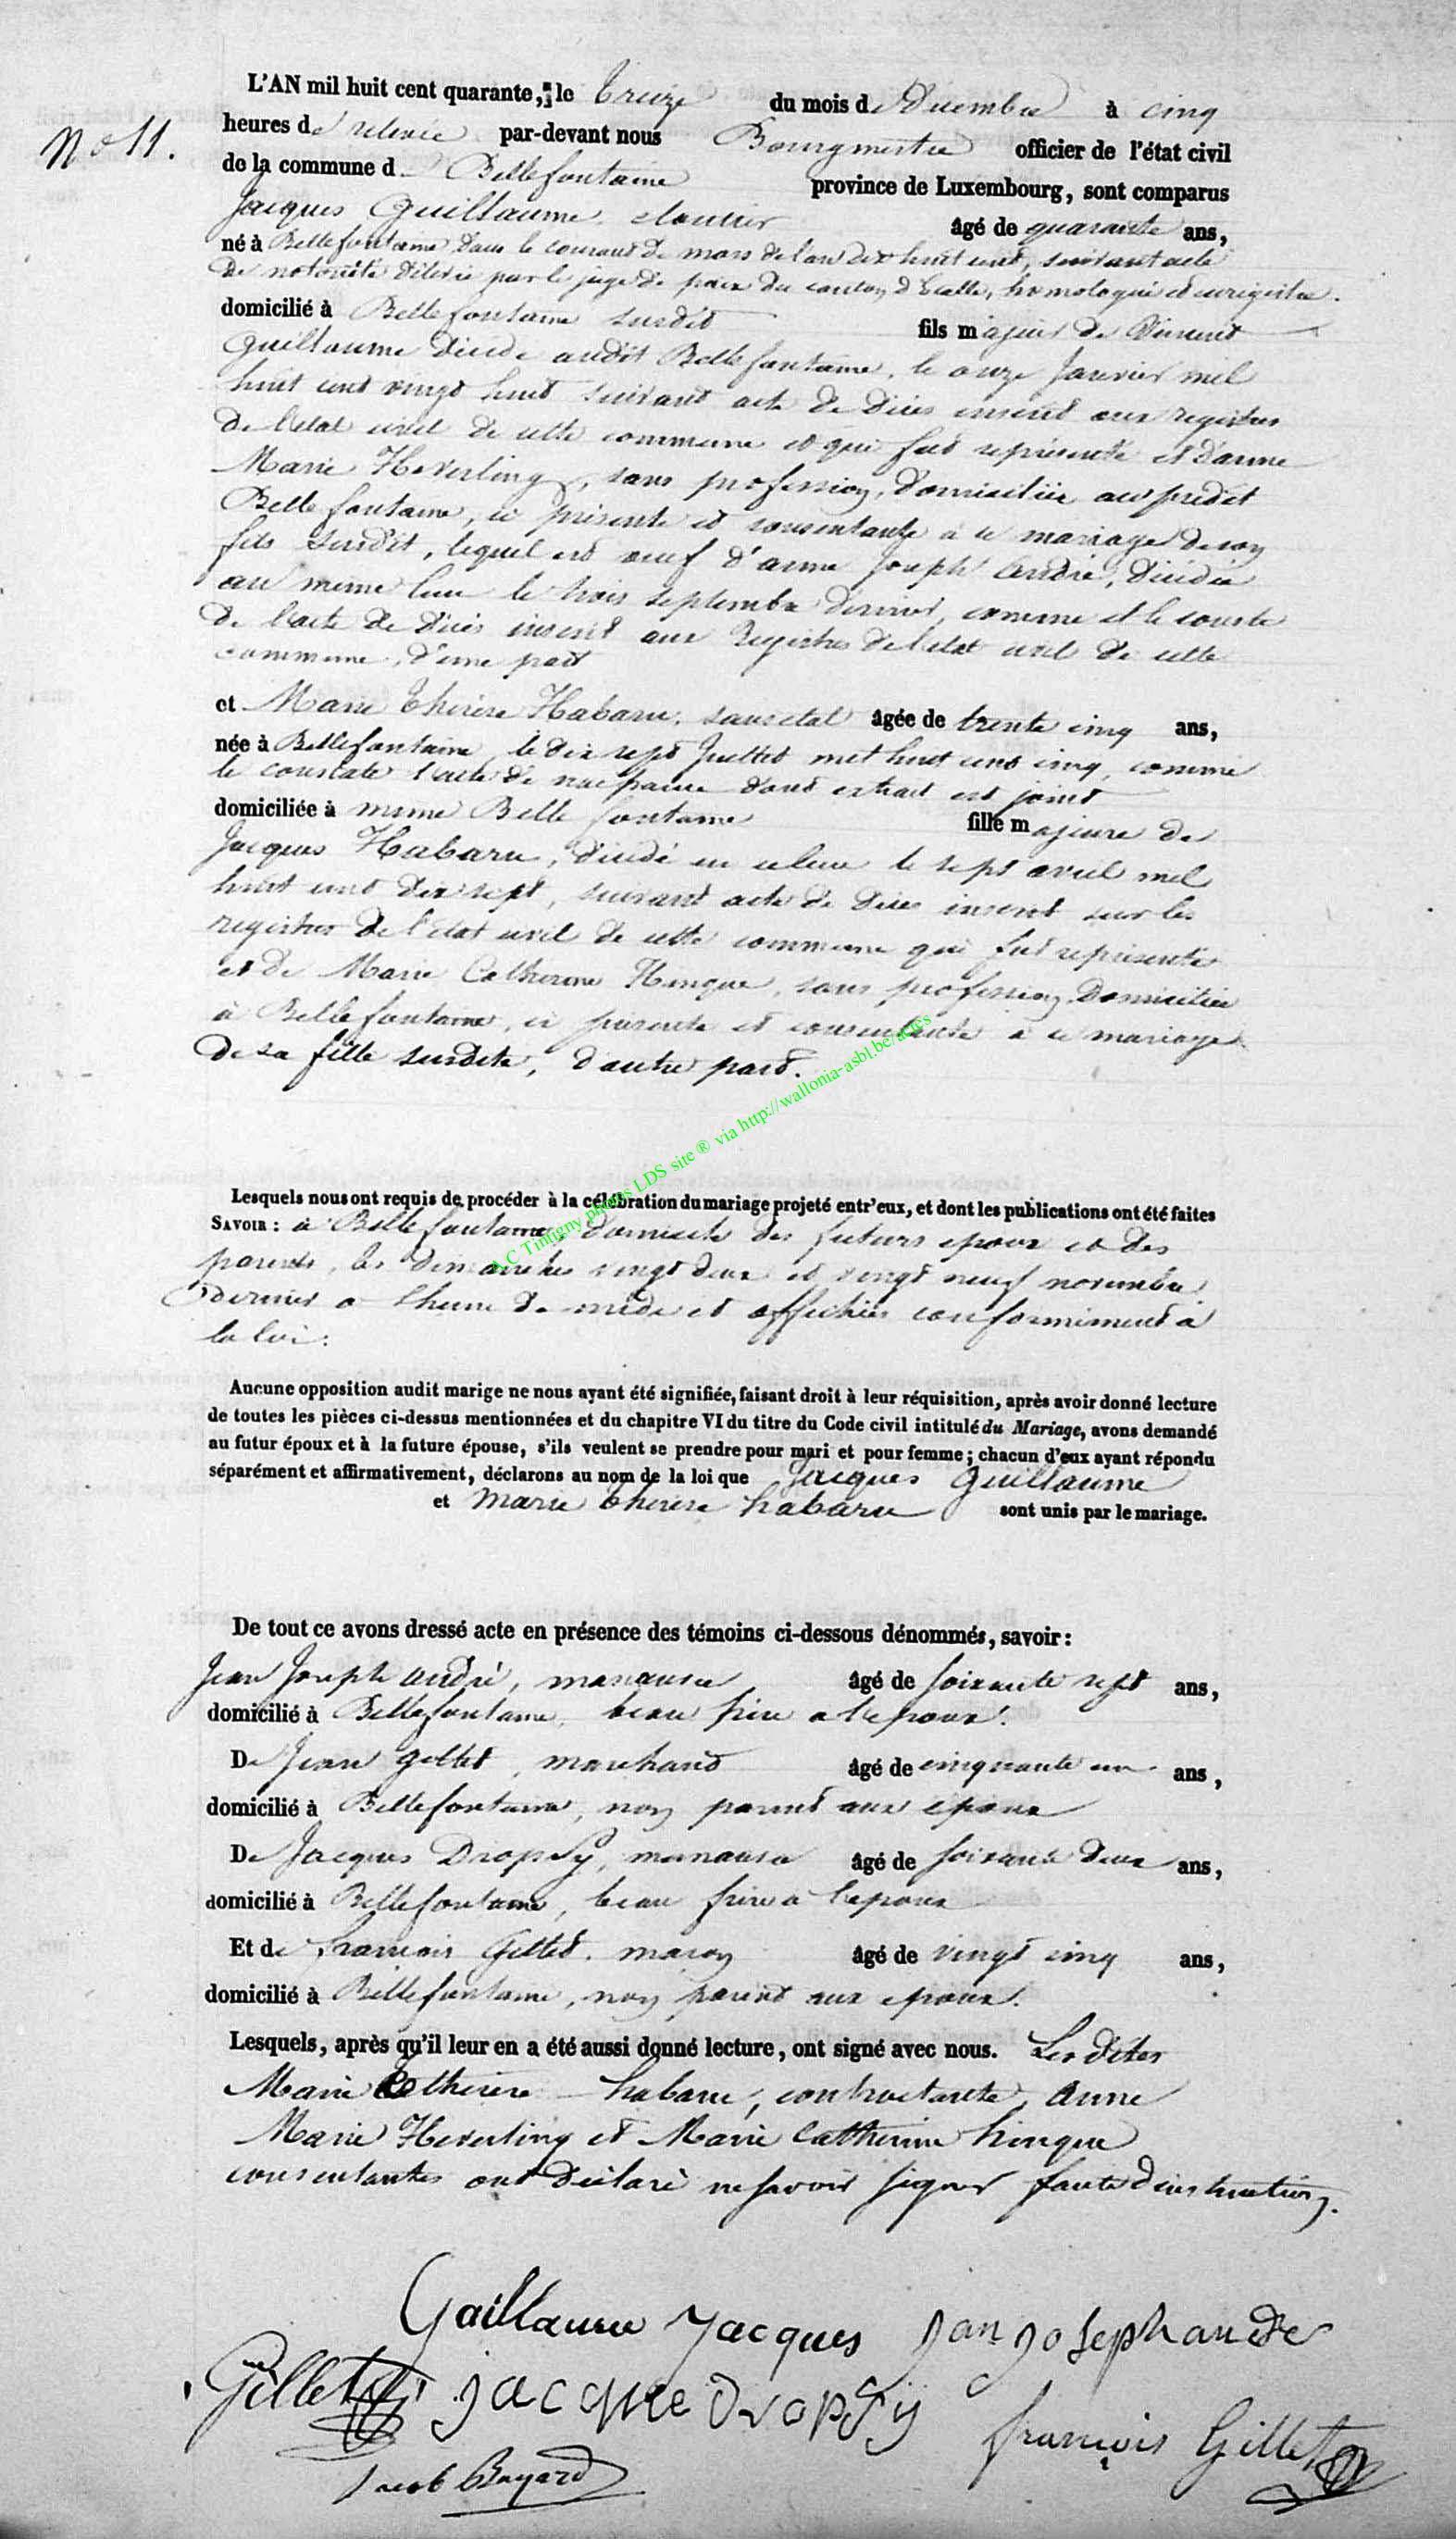 No 11.
L'AN mil huit cent quarante, le treize du mois de Décembre à cinq
heures de relevée par-devant nous Bourgmestre officier de l'état civil
de la commune d Bellefontaine province de Luxembourg, sont comparus
Jacques Guillaume, cloutier âgé de quarante ans,
né à Bellefontaine dans le courant de mars de l'an dix huit cent, suivant acte
de notoriété délivré par le juge de paix du canton d'Etalle, homologué et enregistré.
domicilié à Bellefontaine susdit fils majeur de Vincent
Guillaume décédé audit Bellefontaine, le onze Janvier mil
huit cent vingt huit suivant acte de décès inscrit aux registres
de l'état civil de cette commune et qui fut représenté et d'anne
Marie Heverling, sans profession, domiciliée au prédit
Bellefontaine, ci présente et consentante à ce mariage de son
fils susdit, lequel est veuf d'anne Joseph André, décédée
au même lieu le trois septembre dernier, comme et le conste
de l'acte de décès inscrit aux Registres de l'état civil de cette
commune, d'une part
et Marie thérèse Habaru, sans état âgée de trente cinq ans,
née à Bellefontaine, le dix sept Juillet mil huit cent cinq, comme
le constate l'acte de naissance dont extrait est joint
domiciliée à même Bellefontaine fille majeure de
Jacques Habaru, décédé en ce lieu le sept avril mil
huit cent dix sept, suivant acte de décès inscrit sur les
registres de l'état civil de cette commune qui fut représenté
et de Marie Catherine Hinque, sans profession, domiciliée
à Bellefontaine, ci présente et consentante à ce mariage
de sa fille susdite, d'autre part.
A.C Tintigny photos LDS site ® via http://wallonia-asbl.be/actes
Lesquels nous ont requis de procéder à la célébration du mariage projeté entr'eux, et dont les publications ont été faites
SAVOIR : à Bellefontaine, domicile des futurs époux et des
parents, les dimanches vingt deux et vingt neuf novembre
dernier a l'heure de midi et affichées conformément à
la loi.
Aucune opposition audit marige ne nous ayant été signifiée, faisant droit à leur réquisition, après avoir donné lecture
de toutes les pièces ci-dessus mentionnées et du chapitre VI du titre du Code civil intitulé du Mariage, avons demandé
au futur époux et à la future épouse, s'ils veulent se prendre pour mari et pour femme ; chacun d'eux ayant répondu
séparément et affirmativement, déclarons au nom de la loi que Jacques Guillaume
et Marie thérèse habaru sont unis par le mariage.
De tout ce avons dressé acte en présence des témoins ci-dessous dénommés, savoir :
Jean Joseph andré, manœuvre âgé de soixante sept ans,
domicilié à Bellefontaine, beau frère a l'époux.
De Jean gillet, marchand âgé de cinquante un ans,
domicilié à Bellefontaine, non parent aux époux
De Jacques Dropsy, manœuvre âgé de soixante deux ans,
domicilié à Bellefontaine, beau frère à l'époux
Et de francois Gillet, maçon âgé de vingt cinq ans,
domicilié à Bellefontaine, non parent aux époux.
Lesquels, après qu'il leur en a été aussi donné lecture, ont signé avec nous. Les dites
Marie thérèse habaru, contractante, Anne
Marie Heverling et Marie Catherine hinque
consentantes ont déclaré ne savoir signer faute d'instruction.
Guillaume Jacques Jan josephandre
Gillet jacque Dropsy françois Gillet
Jacob Bayard